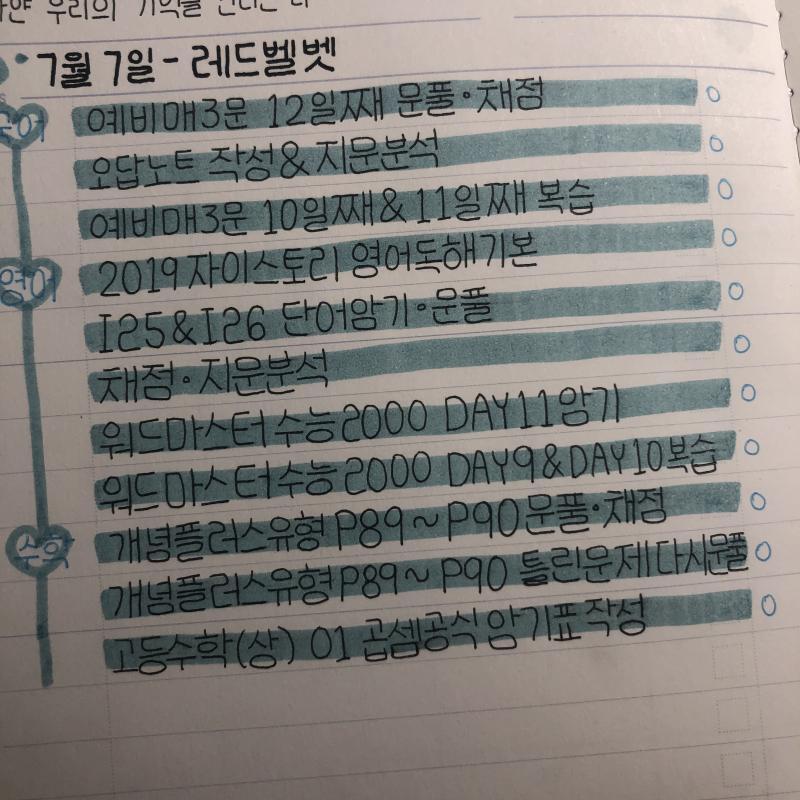 우리의 기억을
7월 7일 - 레드벨벳
국어
예비매3문 12일째 문풀·채점
오답노트 작성 & 지문분석
예비매3문 10일째 & 11일째 복습
영어
2019 자이스토리 영어독해기본
I25 & I26 단어암기·문풀
채점·지문분석
워드마스터 수능 2000 DAY11 암기
워드마스터 수능 2000 DAY9 & DAY10 복습
수학
개념플러스유형 P89 ~ P90 문풀·채점
개념플러스유형 P89 ~ P90 틀린문제 다시문풀
고등수학(상) 01 곱셈공식 암기표 작성